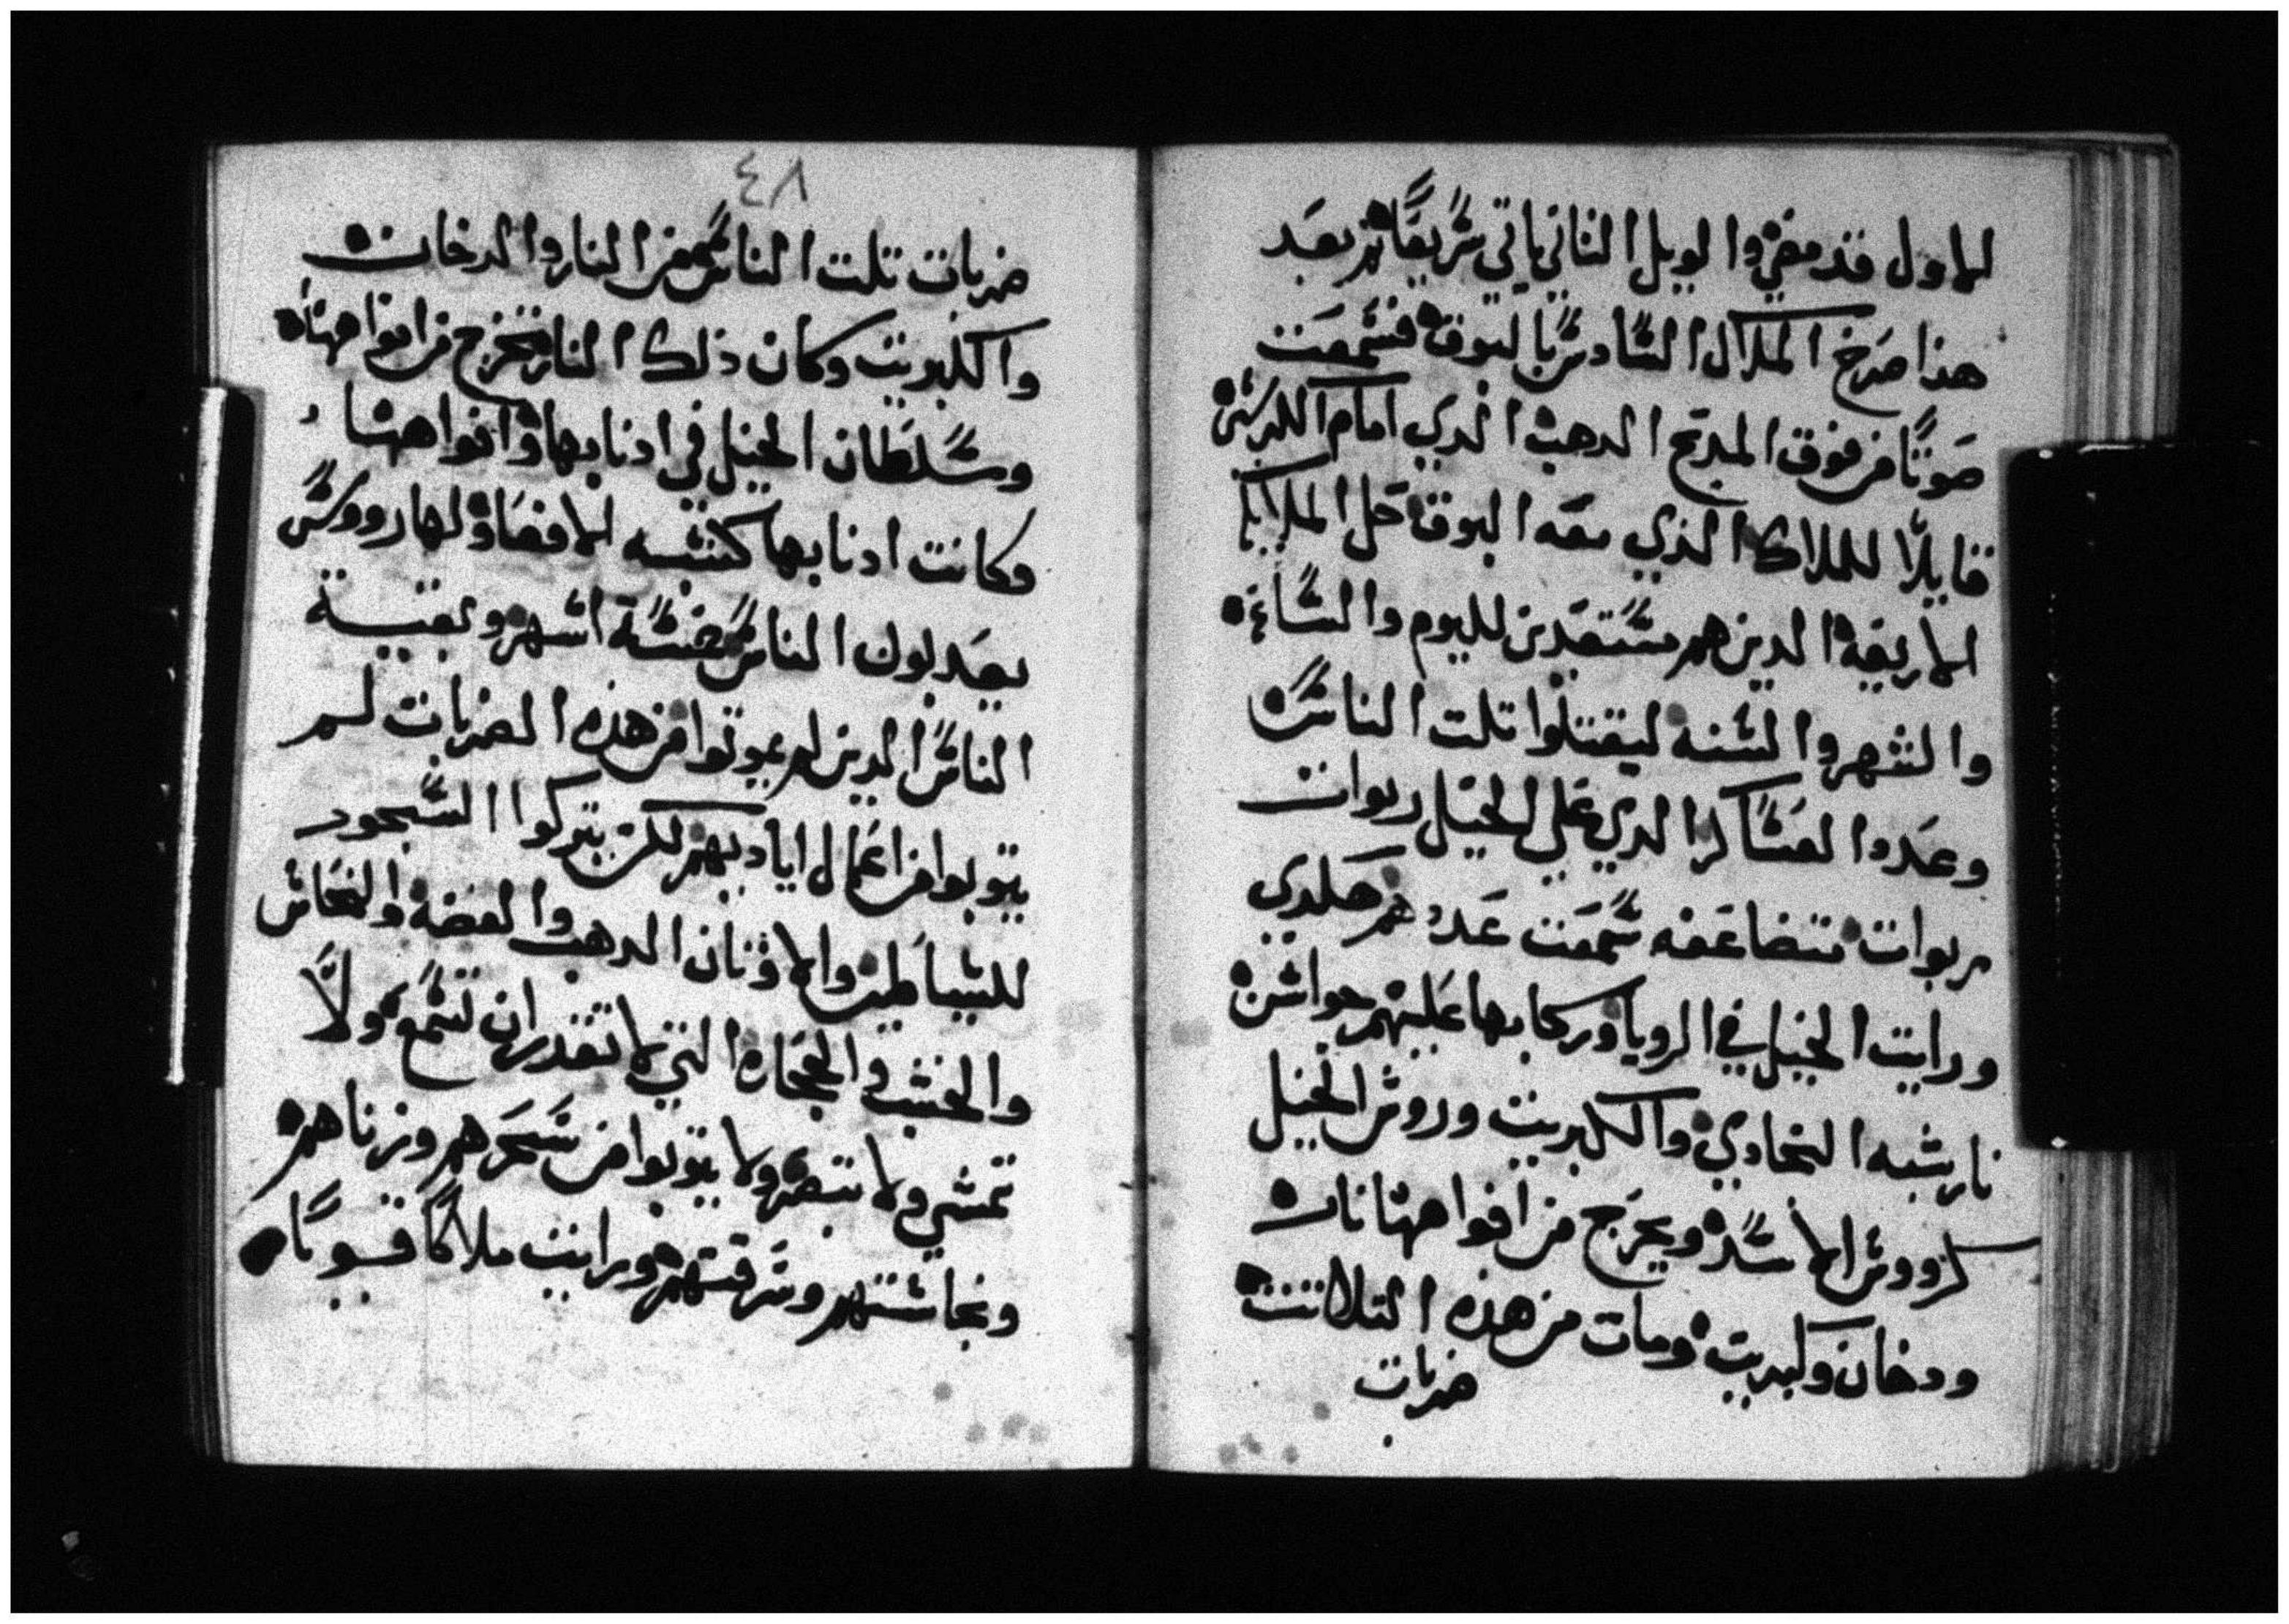 الاول قد مضي والويل الثاني ياتي سريعًا ثم بعد
هذا صرخ الملاك السادس بالبوق فسمعت
صوتًا من فوق المدبح الدهب الدي امام الكرسي
قايلًا للملاك الذي معه البوق حل الملايكه
الاربعه الدين هم مستعدين لليوم والساعه
والشهر والسنه ليقتلوا تلت الناس
وعدد العساكر الدي علي الخيل ربوات
ربوات متضاعفه سمعت عددهم هكدي
ورايت الخيل في الرويا وركابها عليهم جواشن
نار شبه النحادي والكبريت وروس الخيل
كرووس الاسد ويخرج من افواهها نار
ودخان وكبريت ومات من هذه التلاتت
ضربات
٤٨
ضربات تلت الناس من النار والدخان
والكبريت وكان ذلك النار تخرج من افواهها
وسلطان الخيل في ادنابها وافواهها
وكانت ادنابها كتشبه الافعا ولها رووس
يعدبون الناس خمسة اشهر وبقية
الناس الدين لم يموتوا من هذه الضربات لم
يتوبوا من اعمال اياديهم لكن يتركوا السجود
للشياطين والاوثان الدهب والفضه والنحاس
والخشب والحجاره التي لا تقدر ان تسمع ولا
تمشي ولا تبصر ولا يتوبوا من سحرهم وزناهم
ونجاستهم وسرقتهم ورايت ملاكًا قويًا